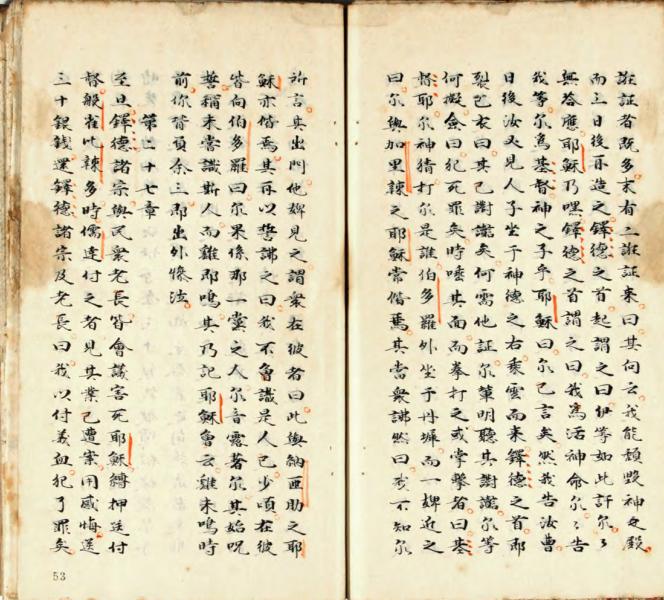 誑証者既多末有二誑証來曰其向云我能頹毀神之殿
而三日後再造之鐸德之首起謂之曰伊等如此訐尔尔
無答應耶穌乃嘿鐸德之首謂之曰我為活神命尔尔告
我等尔為基督神之子乎耶穌曰尔已言矣然我告汝曹
日後汝又見人子坐于神德之右乘雲而來鐸德之首即
裂己衣曰其已對謗矣何需他証尔輩明聽其對謗尔等
何擬僉曰犯死罪矣時唾其面而拳打之或掌擊者曰基
督耶尔神猜打尔是誰伯多羅外坐于丹墀而一婢近之
曰尔與加里辣之耶穌常偕焉其當眾諱然曰我不知尔
所言其出門他婢見之謂眾在彼者曰此與納匝助之耶
穌亦偕焉其再以誓諱之曰我不曾識是人已少頃在彼
皆向伯多羅曰尔果係那一黨之人尔音露著尔其始咒
誓稱未嘗識斯人而雞即鳴其乃記耶穌曾云雞未鳴時
前你皆負余三即出外慘泣
第二十七章
至旦鐸德諸宗與民眾老長皆會議害死耶穌縛押送付
督般雀比辣多時儒達付之者見其業已遭案用慼悔送
三十銀錢還鐸德諸宗及老長曰我以付義血犯了罪矣
53